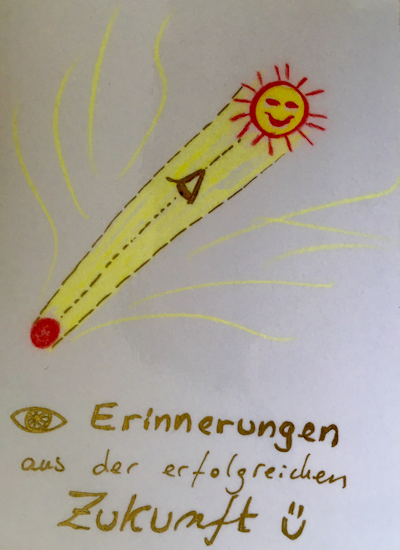 Erinnerungen
aus der erfolgreichen
Zukunft